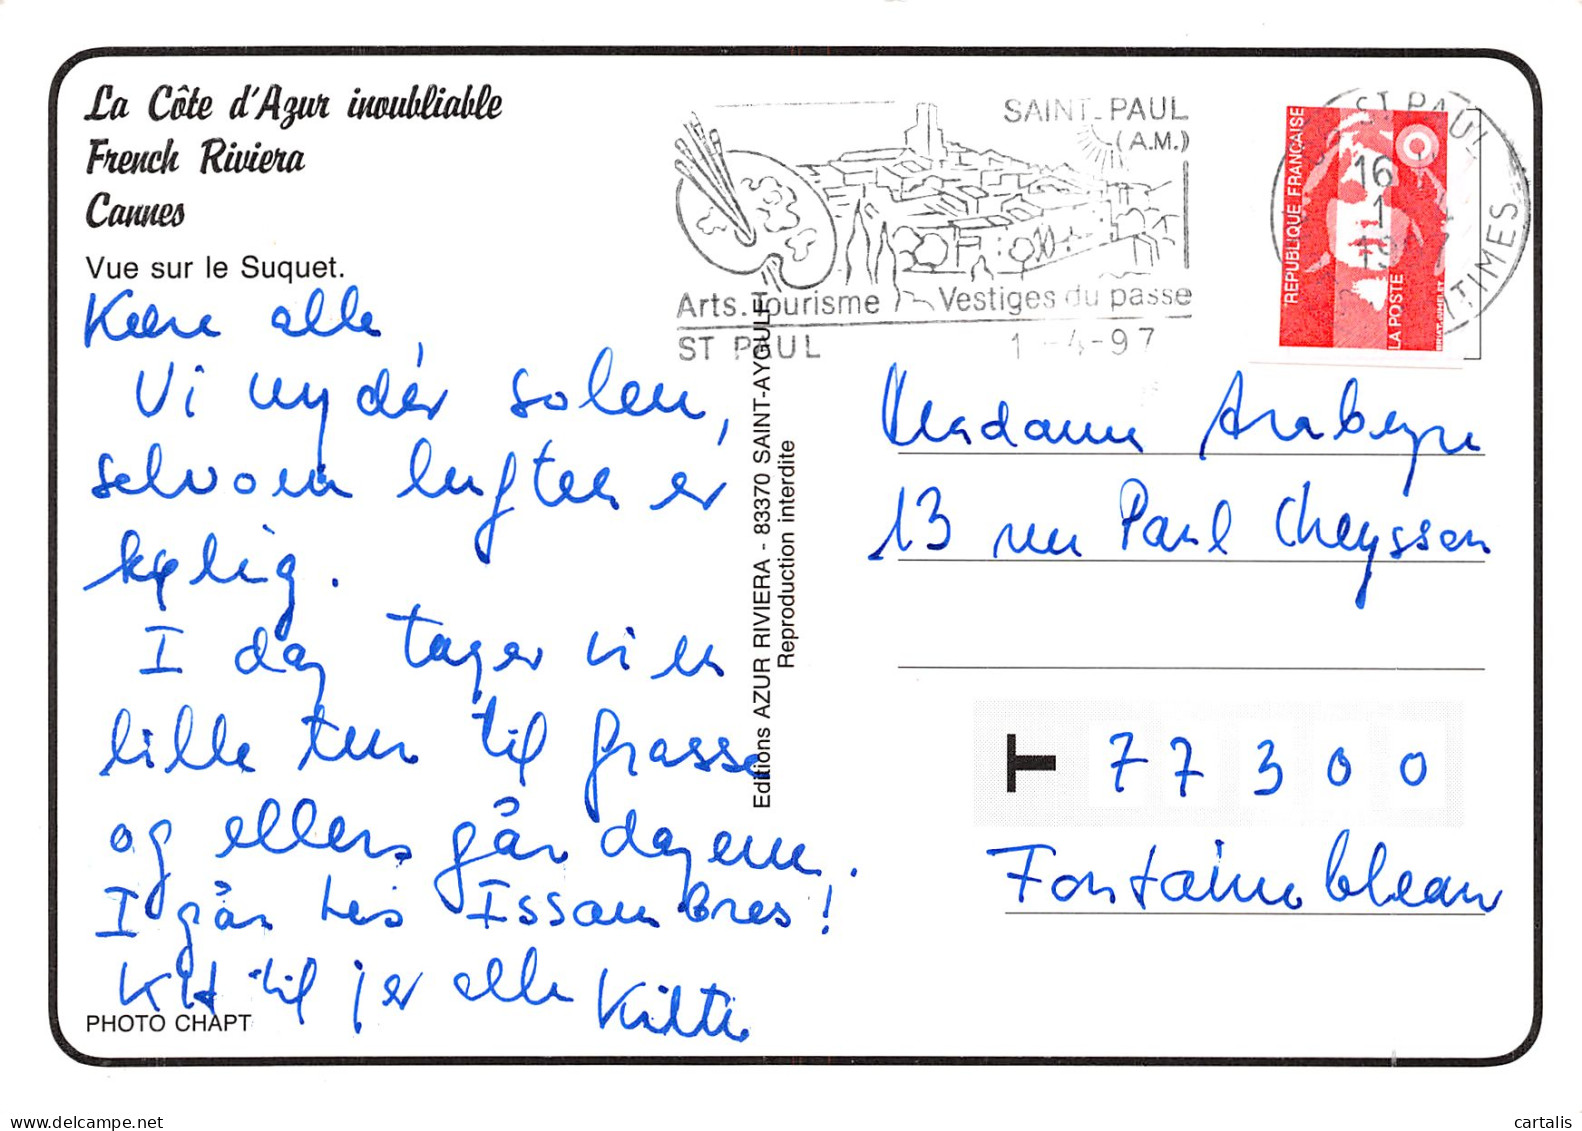 La Côte d'Azur inoubliable
French Riviera
Cannes
Vue sur le Suquet.
Kære alle,
Vi nyder solen,
selvom luften er
kølig.
I dag tager vi en
lille tur til Grasse
og ellers går dagene.
I går Les Issambres!
KH til jer alle
PHOTO CHAPT
Editions AZUR RIVIERA - 83370 SAINT-AYGULF
Reproduction interdite
SAINT-PAUL
(A.M.)
Arts. Tourisme
Vestiges du passe
ST PAUL
1-4-97
REPUBLIQUE FRANÇAISE
LA POSTE
ST PAUL
16 H
1
1997
Madame Arabeyre
13 rue Paul Cheysson
T 77300
Fontainebleau
cartalis